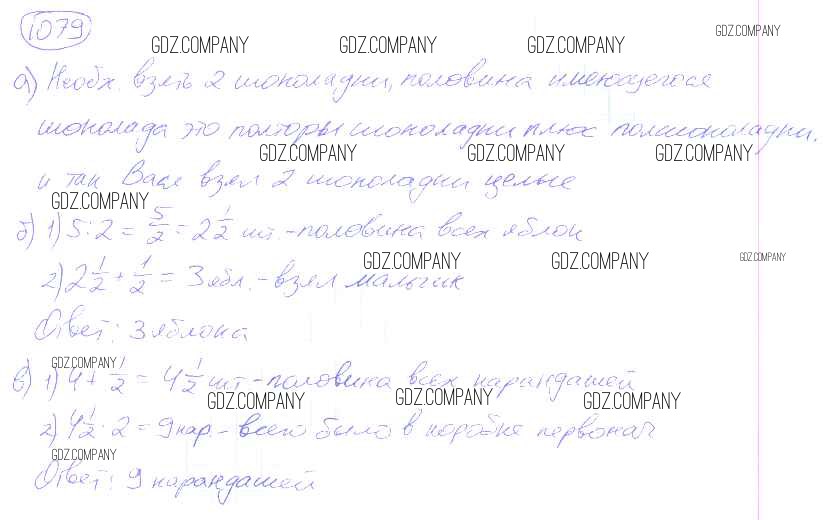 1079
GDZ.COMPANY GDZ.COMPANY GDZ.COMPANY GDZ.COMPANY
а) Необх. взять 2 шоколадки, половина имеющегося
шоколада это полторы шоколадки плюс полшоколадки.
GDZ.COMPANY GDZ.COMPANY GDZ.COMPANY
и так Вася взял 2 шоколадки целые
GDZ.COMPANY
б) 1) 5:2 = 5/2 = 2 1/2 шт. - половина всех яблок
GDZ.COMPANY GDZ.COMPANY GDZ.COMPANY
2) 2 1/2 + 1/2 = 3 ябл. - взял мальчик
Ответ: 3 яблока
GDZ.COMPANY
в) 1) 4 + 1/2 = 4 1/2 шт - половина всех карандашей
GDZ.COMPANY GDZ.COMPANY GDZ.COMPANY
2) 4 1/2 · 2 = 9 кар. - всего было в коробке первонач
GDZ.COMPANY
Ответ: 9 карандашей